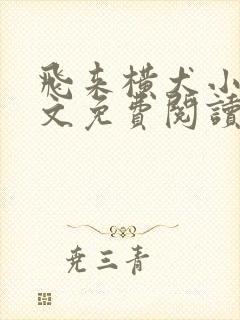 飛来横犬小
文免費閱讀
尭三青